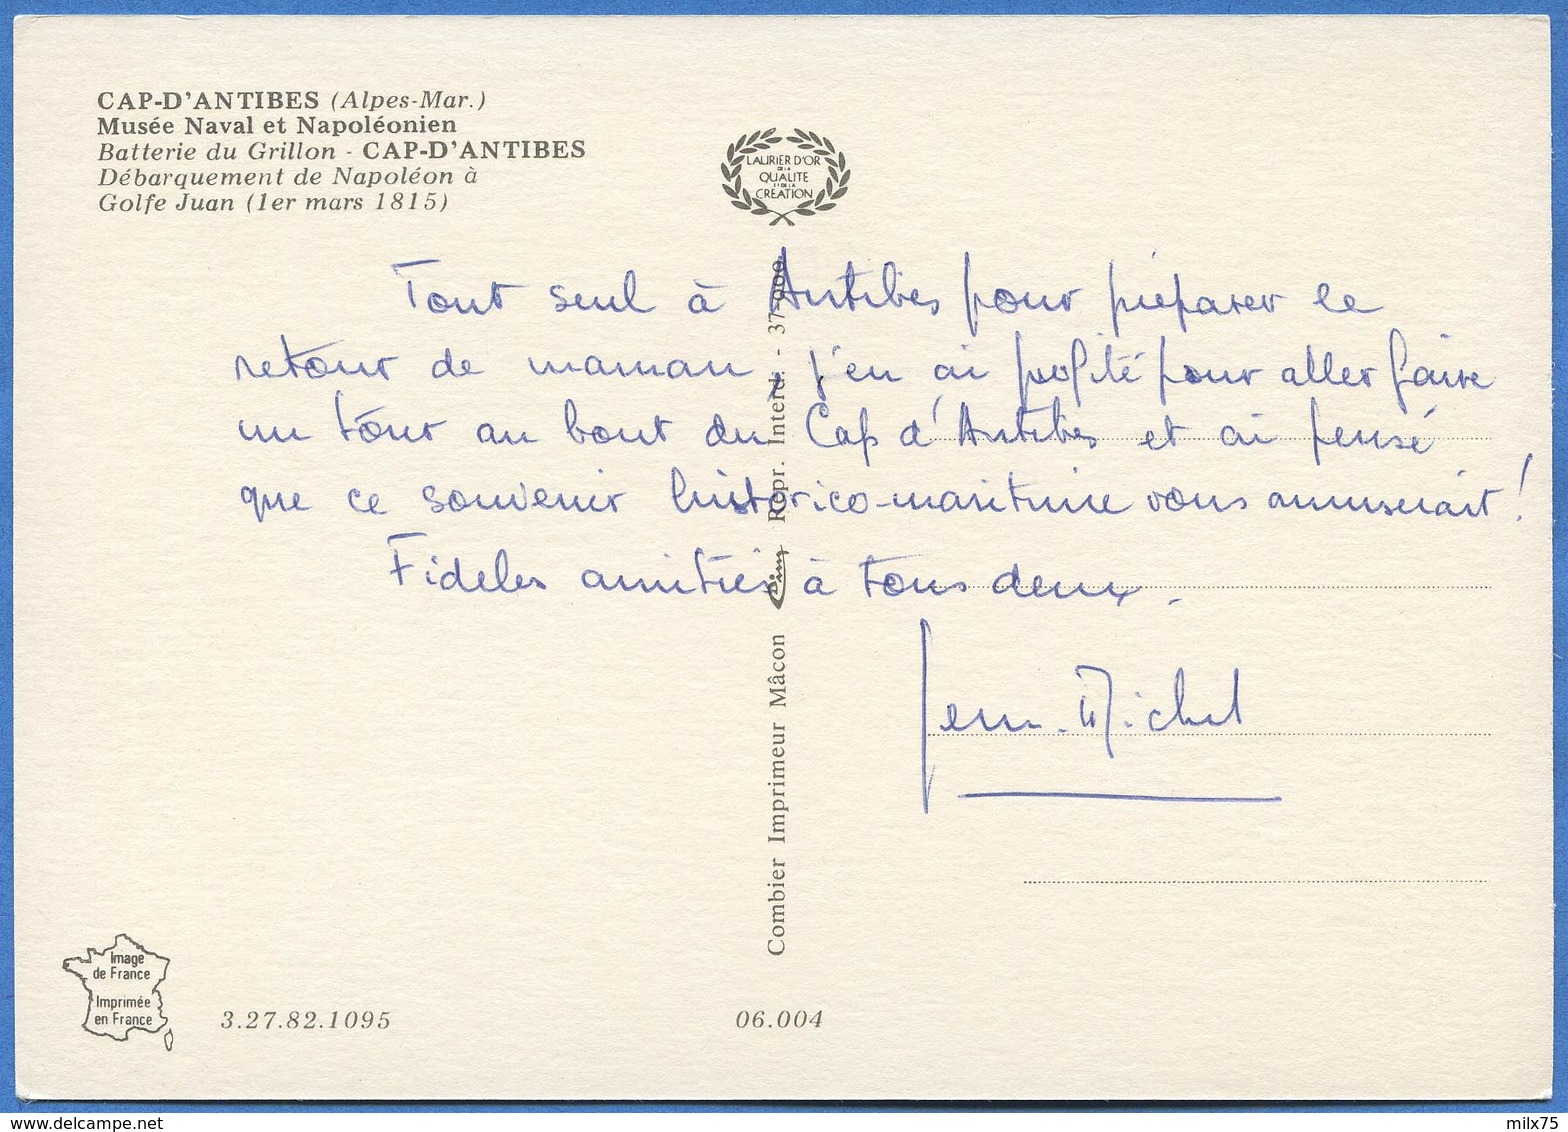 CAP-D'ANTIBES (Alpes-Mar.)
Musée Naval et Napoléonien
Batterie du Grillon - CAP-D'ANTIBES
Débarquement de Napoléon à
Golfe Juan (1er mars 1815)
LAURIER D'OR
DE LA
QUALITE
ET DE LA
CREATION
Tout seul à Antibes pour préparer le
retour de maman, j'en ai profité pour aller faire
un tour au bout du Cap d'Antibes et ai pensé
que ce souvenir historico-maritime vous amuserait !
Fidèles amitiés à tous deux.
Jean-Michel
Combier Imprimeur Mâcon Cim Repr. Interd. - 37-000
Image
de France
Imprimée
en France
3.27.82.1095
06.004
www.delcampe.net
milx75